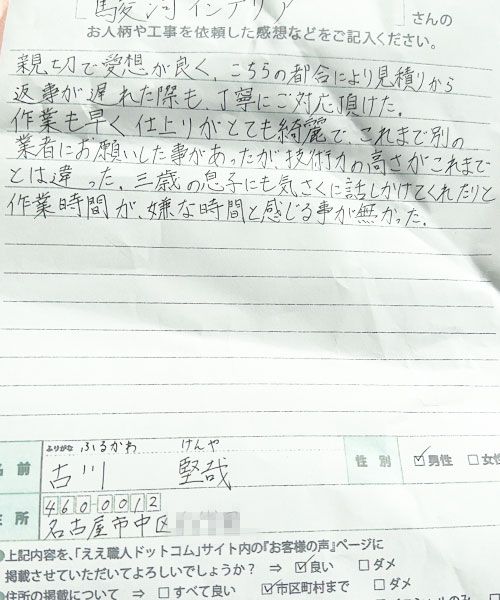 駿河インテリア さんの
お人柄や工事を依頼した感想などをご記入ください。
親切で愛想が良く、こちらの都合により見積りから
返事が遅れた際も、丁寧にご対応頂けた。
作業も早く仕上りがとても綺麗で、これまで別の
業者にお願いした事があったが技術力の高さがこれまで
とは違った。三歳の息子にも気さくに話しかけてくれたりと
作業時間が、嫌な時間と感じる事が無かった。
ふりがな ふるかわ けんや
名前 古川 堅哉 性別 ☑男性 □女性
460-0012
住所 名古屋市中区
●上記内容を、「ええ職人ドットコム」サイト内の『お客様の声』ページに
掲載させていただいてよろしいでしょうか? ⇒ ☑良い □ダメ
●住所の掲載について ⇒ □すべて良い ☑市区町村まで □ダメ